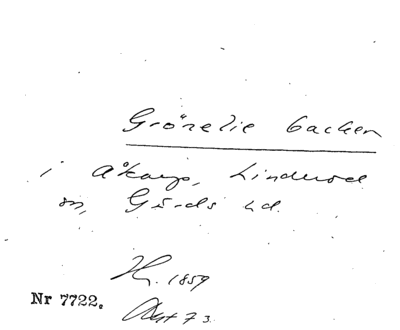 Grönelie backen
i Åkarp, Linderöd
sn, Gärds hd.
H. 1859
Nr 7722.
73